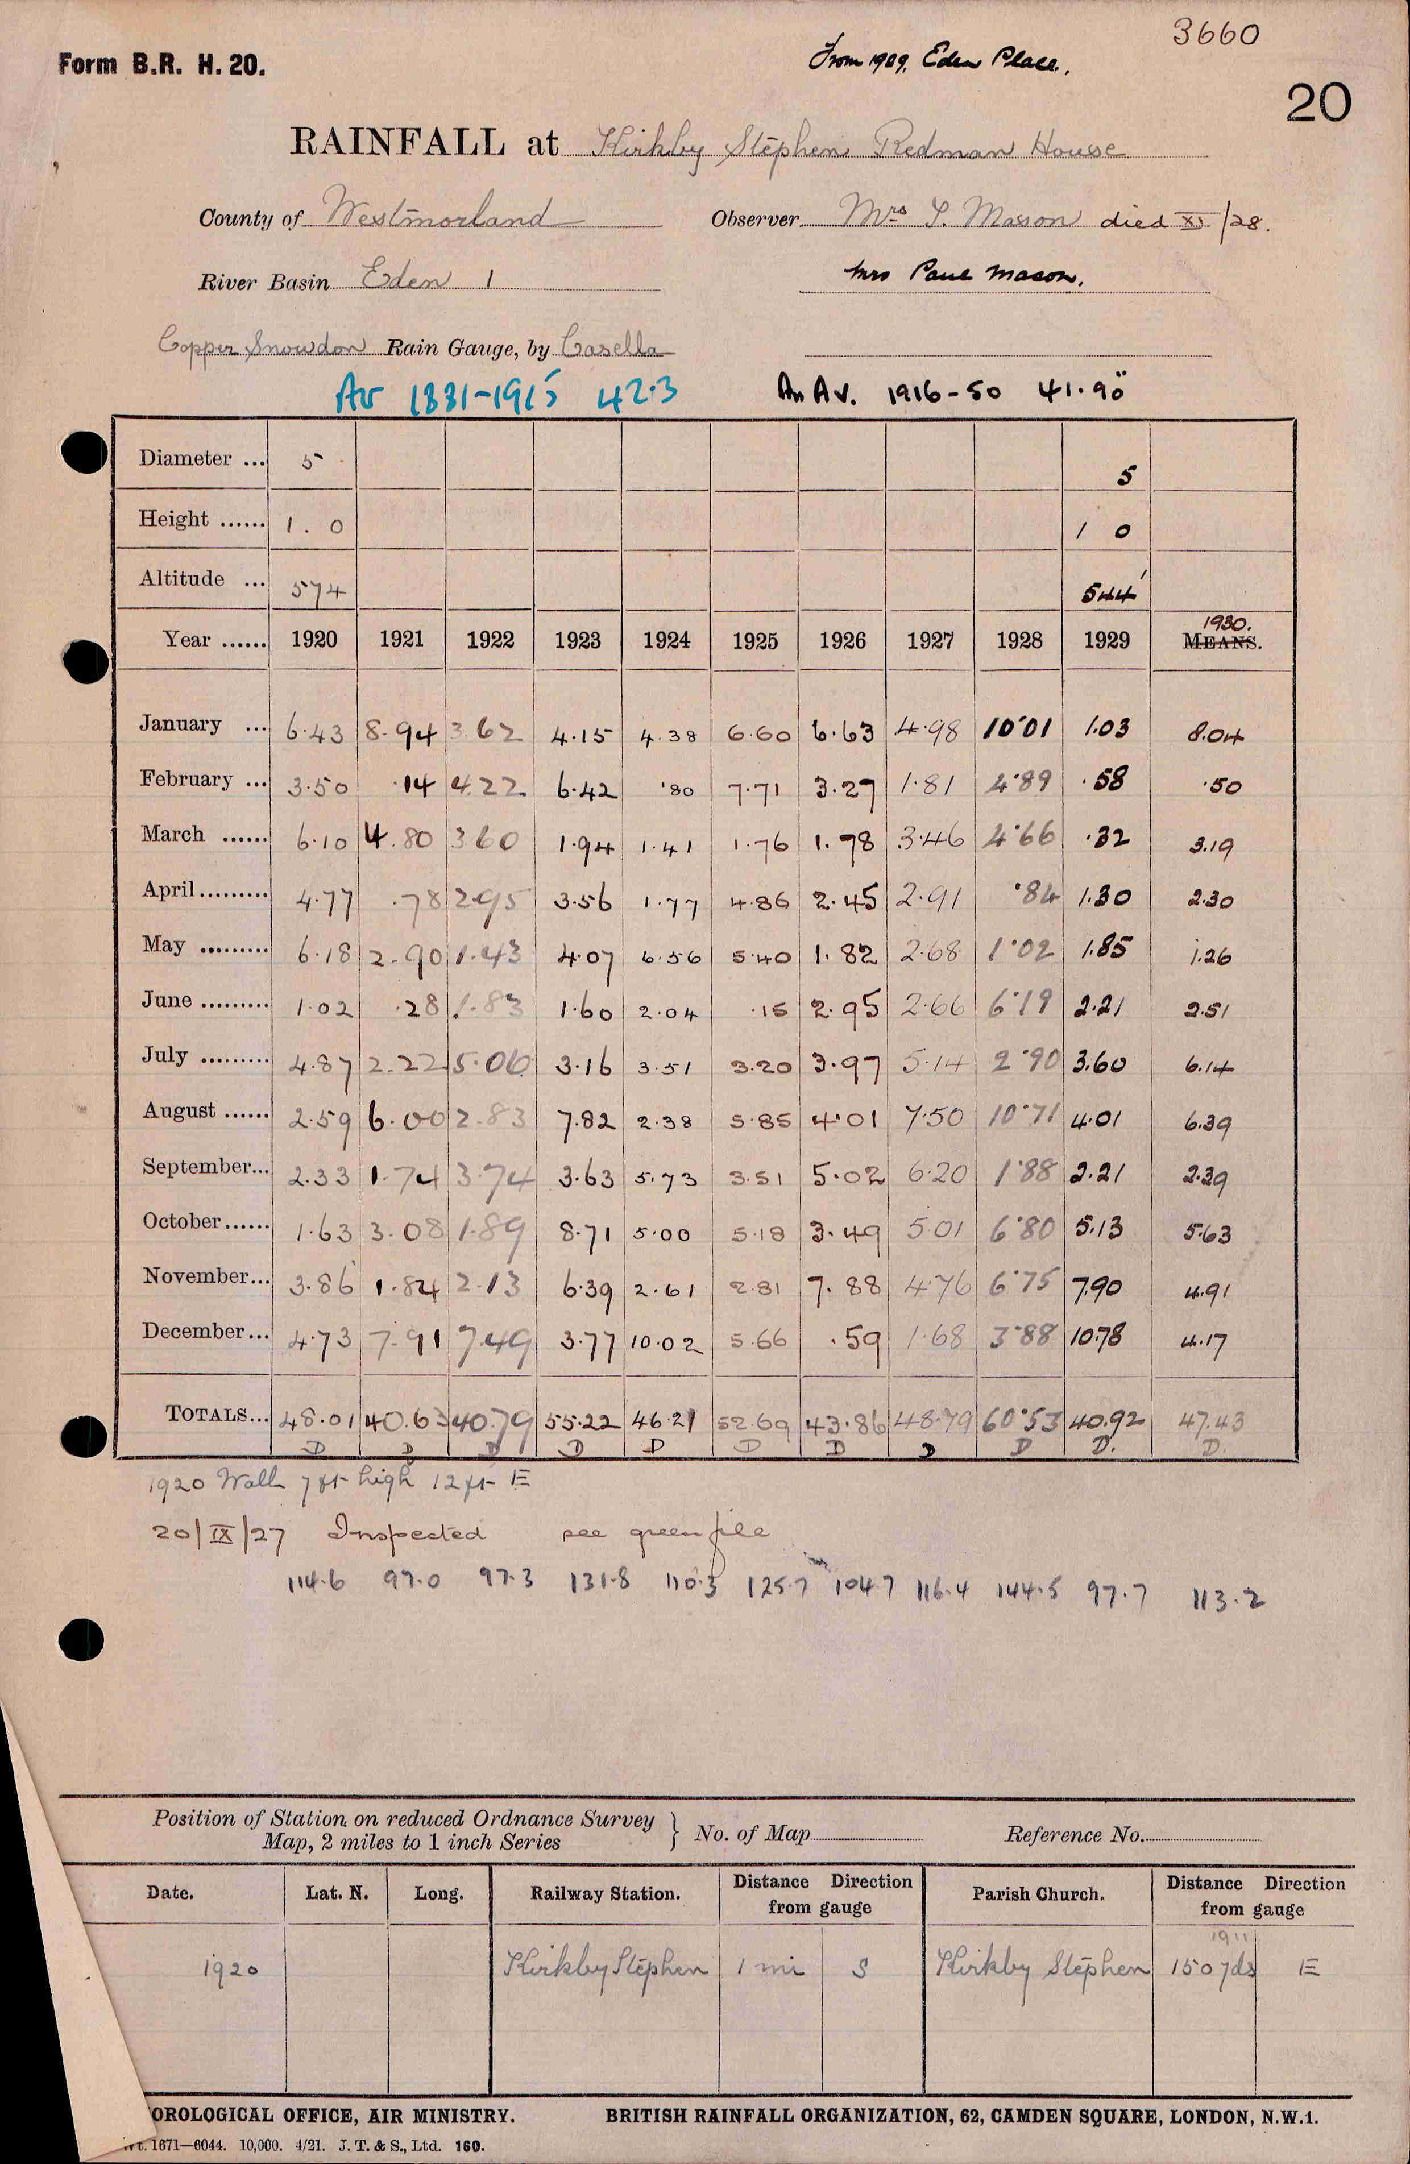 3660
Form B.R. H. 20.
From 1929. Eden Place.
20
RAINFALL at Kirkby Stephen Redman House
County of Westmorland Observer Mrs T. Mason died XI/28.
River Basin Eden 1 Mrs Paul Mason.
Copper Snowdon Rain Gauge, by Casella
Av 1881-1915 42.3 An Av. 1916-50 41.90"
Diameter ... 5 5
Height ...... 1. 0 1 0
Altitude ... 574 544'
1930.
Year ...... 1920 1921 1922 1923 1924 1925 1926 1927 1928 1929 MEANS.
January ... 6.43 8.94 3.62 4.15 4.38 6.60 6.63 4.98 10.01 1.03 8.04
February ... 3.50 .14 4.22 6.42 .80 7.71 3.27 1.81 4.89 .58 .50
March ...... 6.10 4.80 3.60 1.94 1.41 1.76 1.78 3.46 4.66 .32 3.19
April ......... 4.77 .78 2.95 3.56 1.77 4.86 2.45 2.91 .84 1.30 2.30
May ......... 6.18 2.90 1.43 4.07 6.56 5.40 1.82 2.68 1.02 1.85 1.26
June ......... 1.02 .28 1.83 1.60 2.04 .15 2.95 2.66 6.19 2.21 2.51
July ......... 4.87 2.22 5.06 3.16 3.51 3.20 3.97 5.14 2.90 3.60 6.14
August ...... 2.59 6.00 2.83 7.82 2.38 5.85 4.01 7.50 10.71 4.01 6.39
September... 2.33 1.74 3.74 3.63 5.73 3.51 5.02 6.20 1.88 2.21 2.39
October...... 1.63 3.08 1.89 8.71 5.00 5.18 3.49 5.01 6.80 5.13 5.63
November... 3.86 1.84 2.13 6.39 2.61 2.81 7.88 4.76 6.75 7.90 4.91
December... 4.73 7.91 7.49 3.77 10.02 5.66 .59 1.68 3.88 10.78 4.17
TOTALS... 48.01 40.63 40.79 55.22 46.21 52.69 43.86 48.79 60.53 40.92 47.43
D D D D D D D D D D. D.
1920 Wall 7 ft high 12 ft E
20/IX/27 Inspected see green file
114.6 97.0 97.3 131.8 110.3 125.7 104.7 116.4 144.5 97.7 113.2
Position of Station on reduced Ordnance Survey
Map, 2 miles to 1 inch Series } No. of Map Reference No.
Date. Lat. N. Long. Railway Station. Distance Direction from gauge Parish Church. Distance Direction from gauge
1911
1920 Kirkby Stephen 1 mi S Kirkby Stephen 150 yds E
OROLOGICAL OFFICE, AIR MINISTRY. BRITISH RAINFALL ORGANIZATION, 62, CAMDEN SQUARE, LONDON, N.W.1.
Wt. 1671—6044. 10,000. 4/21. J. T. & S., Ltd. 160.